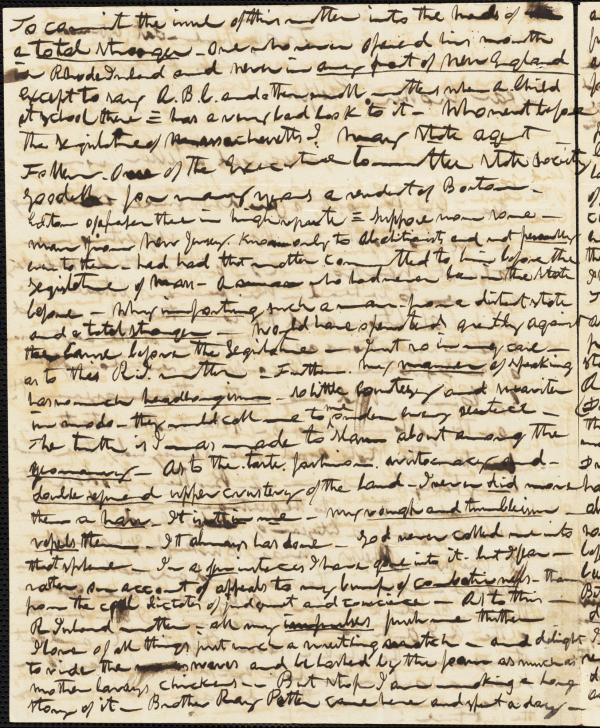 To commit the issue of this matter into the hands of
a total stranger - One who never opened his mouth
in Rhode Island and never in any part of New England
except to say A. B. C. and other small matters when a child
at school there = has a very bad look to it - Who went before
the Legislature of Massachusetts? Many State agent -
Follen. One of the Executive Committee State Society
Goodell - for many years a resident of Boston -
high repute = Suppose now some -
man from New Jersey. Known only to Abolitionists and not personally
even to them - had had that matter committed to him before the
Legislature of Mass - a man who had never been in the State
before - Why importing such a man from a distant state
and a total stranger - Would have operated greatly against
the cause before the Legislature - Just so in my case -
as to this R.I. matter - Further. my manner of speaking
has so much headlongism - so little courtesy and
in modo - they would call me to me in every sentence -
The truth is I was made to slam about among the
yeomanry - As to the taste. fashion. aristocracy and -
double refined upper crustery of the land - I never did move
them a hair - It is not in me - my rough and tumbleism -
repels them - It always has done - God never called me into
that sphere - In a few instances I have gone into it - but I fear -
rather on account of appeals to my bump of combativeness - than
from the cool dictates of judgment and conscience - As to this -
R Island matter - all my impulses push me thither
I love of all things just such a wrestling match - and delight
to ride the waves and be lashed by the foam as much as
mother Careys chickens - But stop I am making a long
story of it - Brother Ray Potter came here and spent a day -